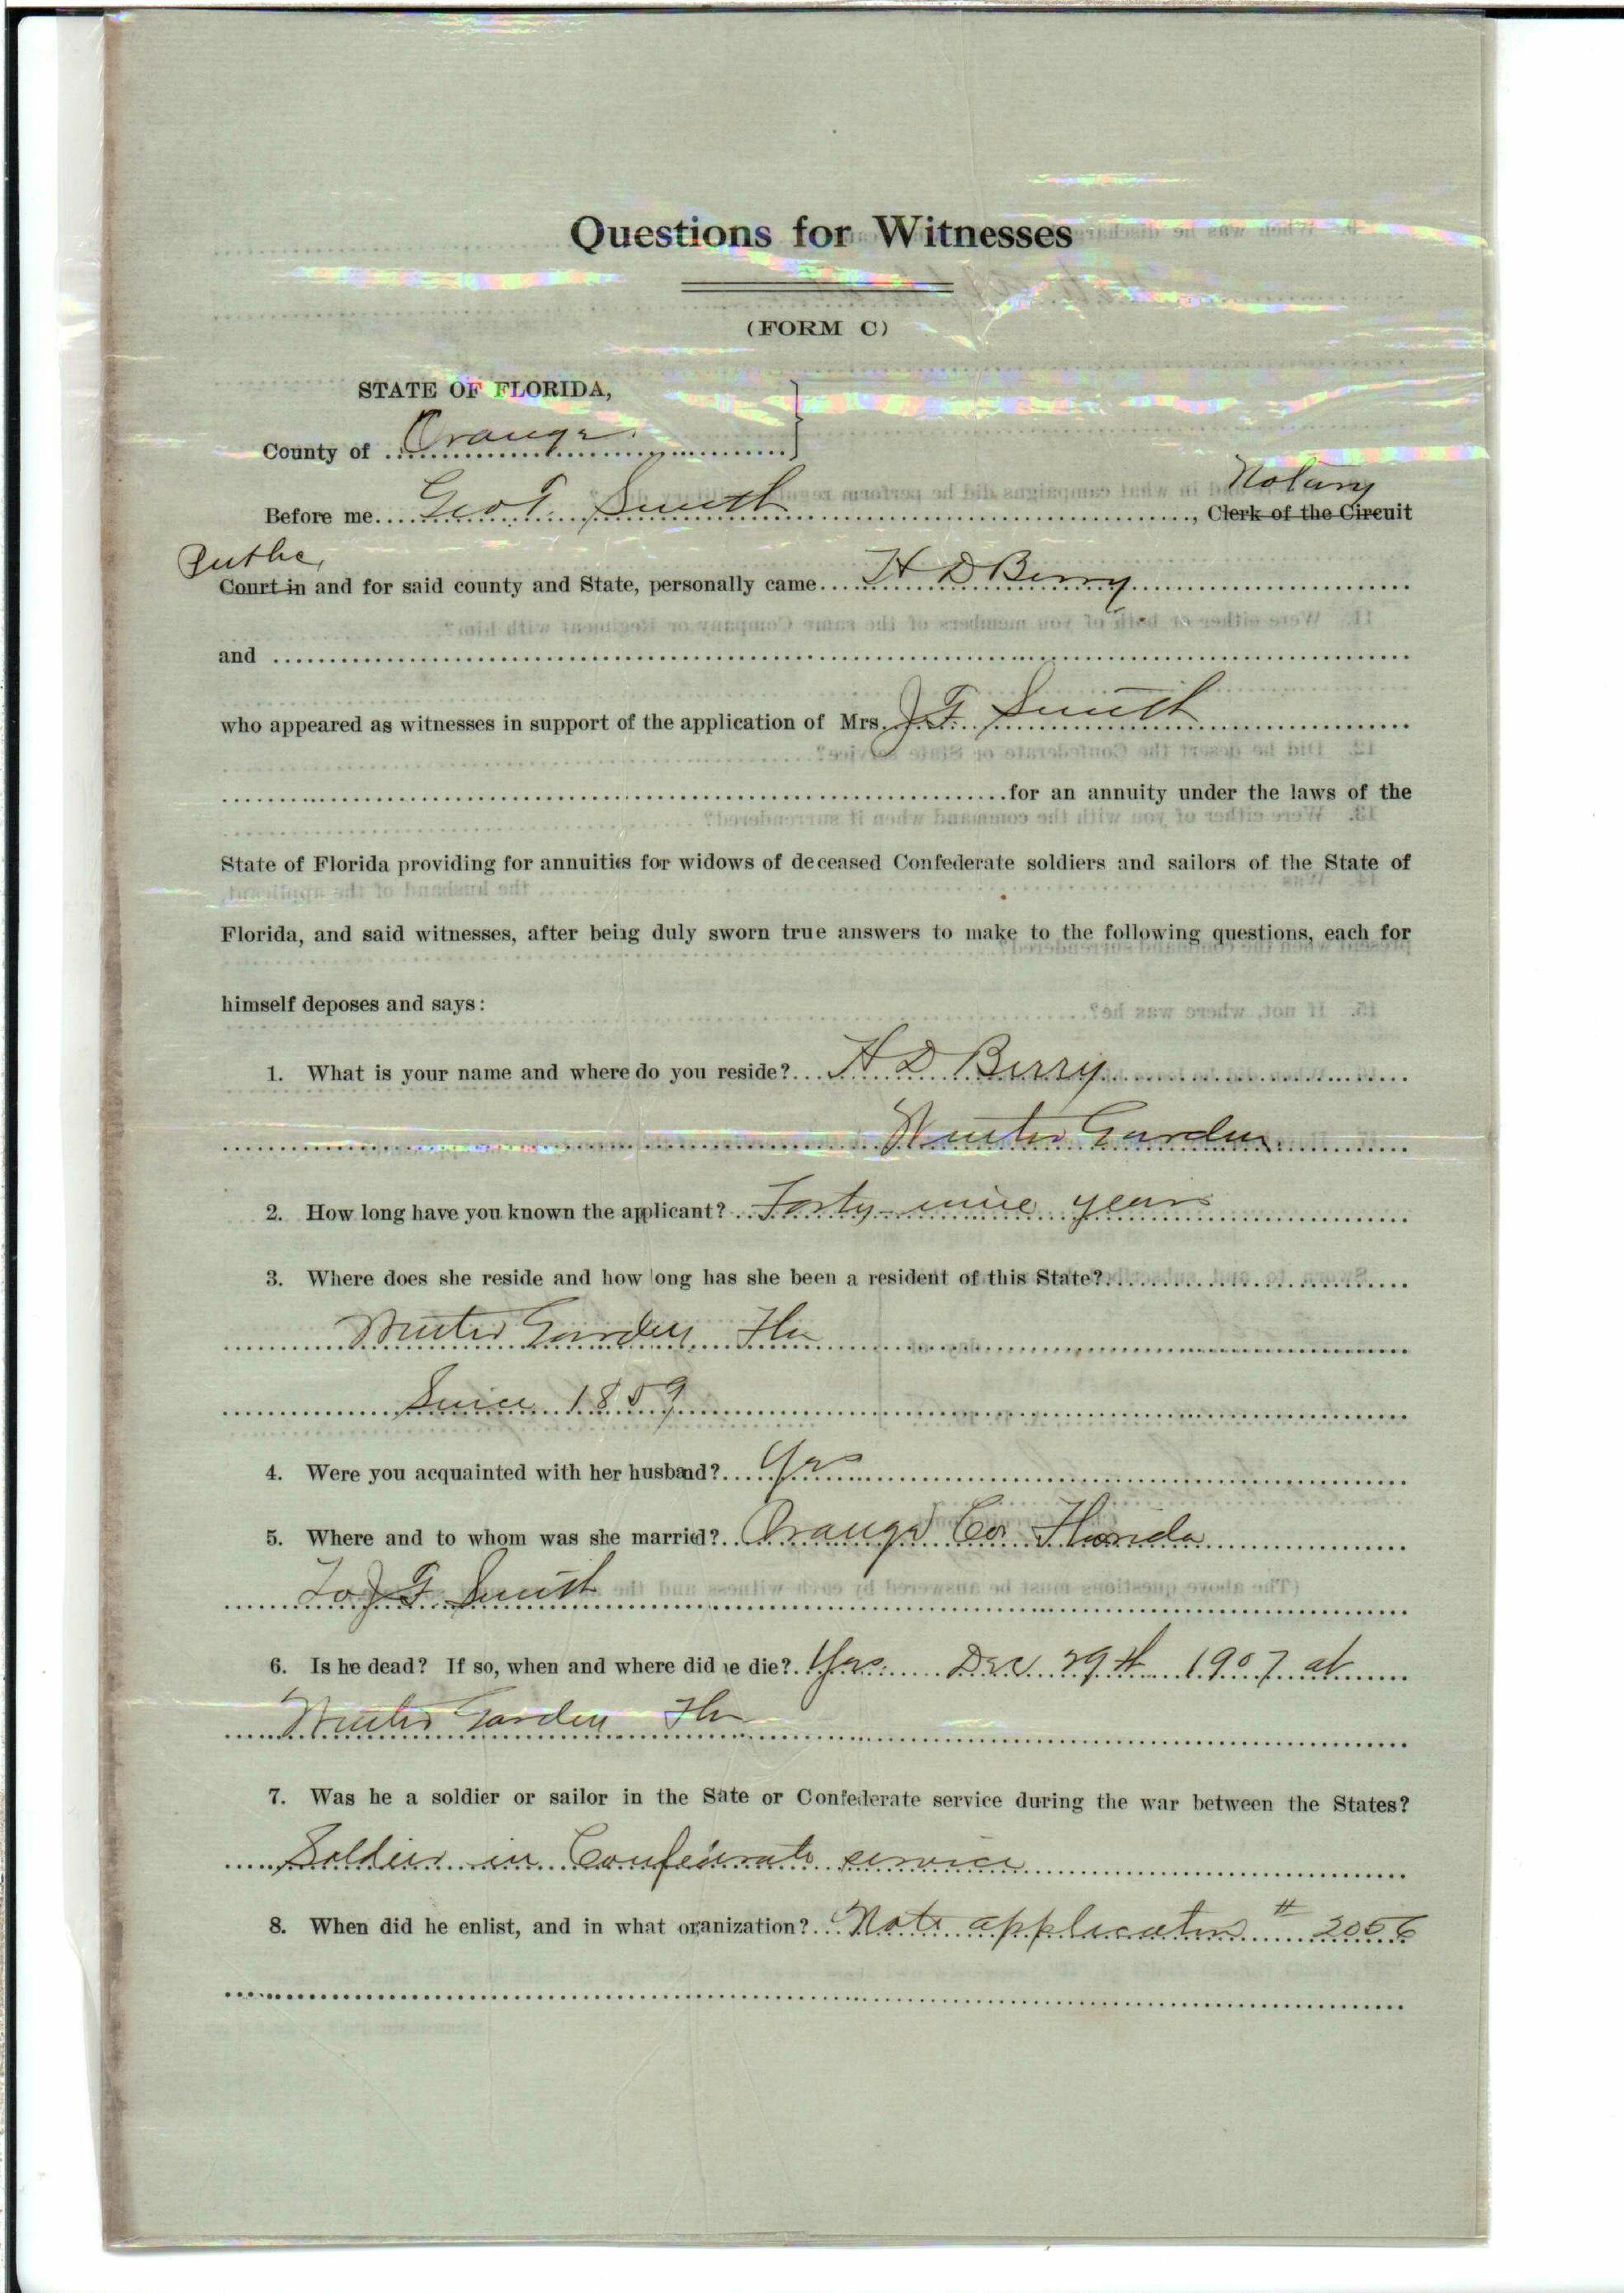 Questions for Witnesses
(FORM C)
STATE OF FLORIDA,
County of Orange
Before me Geo T. Smith, Notary Clerk of the Circuit
Public, Court in and for said county and State, personally came H D Berry
and
who appeared as witnesses in support of the application of Mrs. J F Smith
for an annuity under the laws of the
State of Florida providing for annuities for widows of deceased Confederate soldiers and sailors of the State of
Florida, and said witnesses, after being duly sworn true answers to make to the following questions, each for
himself deposes and says:
1. What is your name and where do you reside? H D Berry
Winter Garden
2. How long have you known the applicant? Forty-nine years
3. Where does she reside and how long has she been a resident of this State?
Winter Garden Fla
Since 1859
4. Were you acquainted with her husband? Yes
5. Where and to whom was she married? Orange Co. Florida
To J F Smith
6. Is he dead? If so, when and where did he die? Yes Dec 29th 1907 at
Winter Garden Fla
7. Was he a soldier or sailor in the State or Confederate service during the war between the States?
Soldier in Confederate service
8. When did he enlist, and in what organization? Note application # 2056